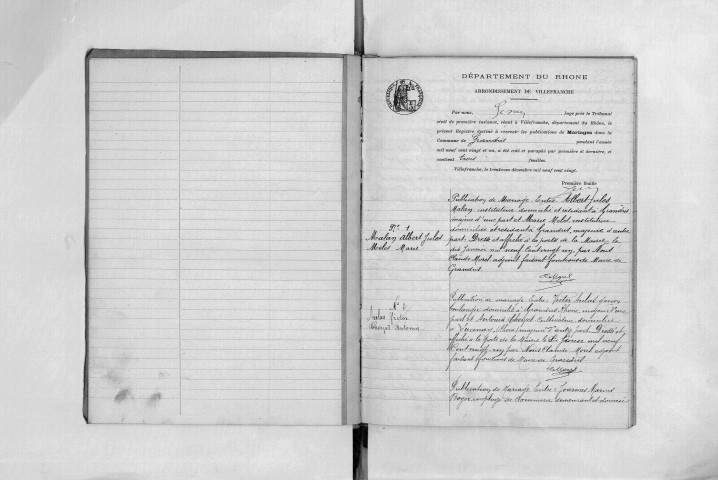 DÉPARTEMENT DU RHONE
ARRONDISSEMENT DE VILLEFRANCHE
Par nous, Juge près le Tribunal
civil de première instance, séant à Villefranche, département du Rhône, le
présent Registre destiné à recevoir les publications de Mariages dans la
Commune de Grandris pendant l'année
mil neuf cent vingt et un, a été coté et paraphé par première et dernière, et
contient trois feuilles.
Villefranche, le trentième décembre mil neuf cent vingt.
Première feuille
N° 1
Malay Albert Jules
Melot Marie
Publication de Mariage Entre Albert Jules
Malay instituteur domicilié et résidant à Grandris
majeur d'une part et Marie Melot institutrice
domiciliée et résidant à Grandris, majeure d'autre
part. Dressé et affiché à la porte de la Mairie le
dix Janvier mil neuf cent vingt un par Nous
Claude Morel adjoint faisant fonctions de Maire de
Grandris
N° 2
Victor
Antonia
Publication de mariage Entre Victor
domicilié à Grandris Rhône, majeur d'une
part et Antonia domiciliée
à (Rhône) majeure d'autre part. Dressé et
affiché à la porte de la Mairie le Janvier mil neuf
cent vingt un par Nous Claude Morel adjoint
faisant fonctions de Maire de Grandris
Publication de Mariage Entre Marius
Roger employé de Commerce demeurant et domicilié